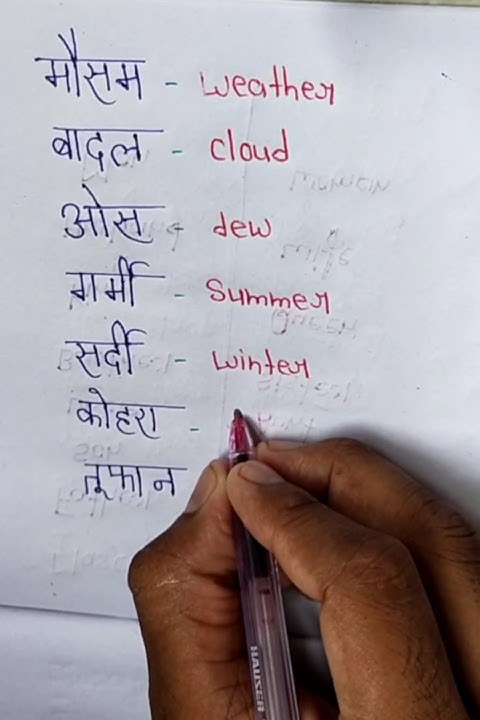 मौसम - weather
बादल - cloud
ओस - dew
गर्मी - Summer
सर्दी - winter
कोहरा -
तूफान
HAUSER